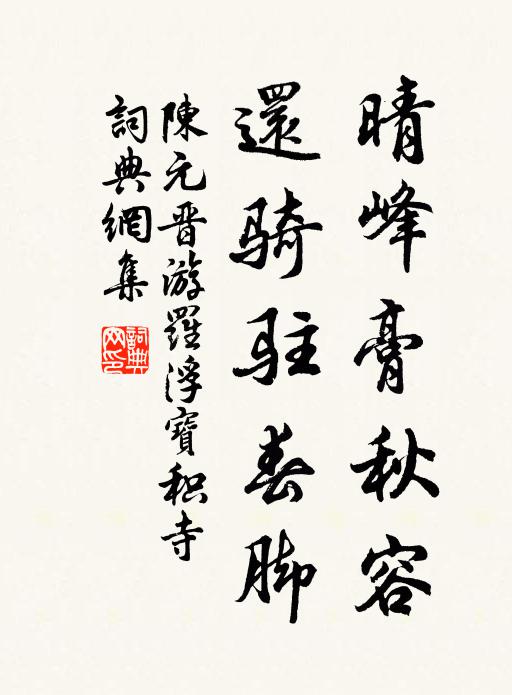 晴峰膏秋容
還騎駐春脚
陳元晋游羅浮寶积寺
詞典網集
詞典网印